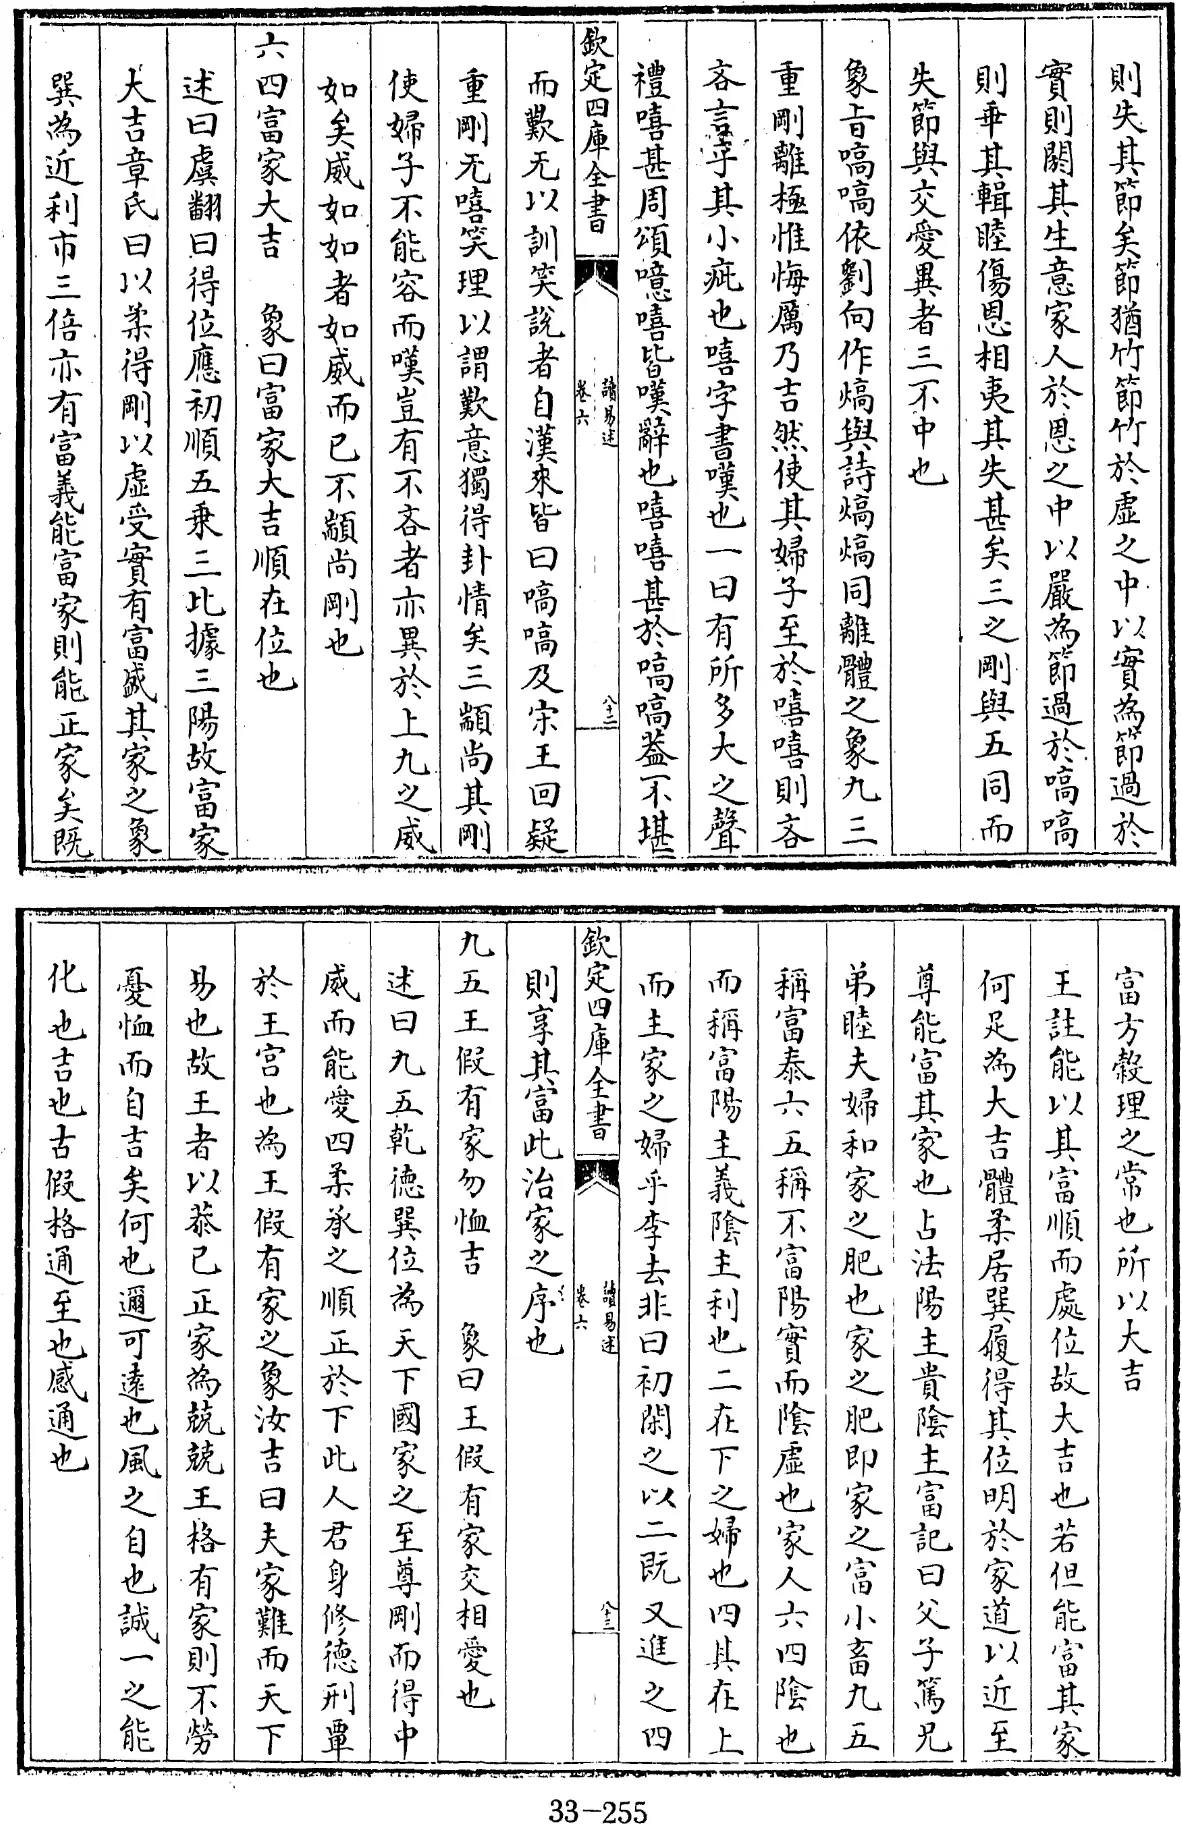 則失其節矣節猶竹節竹於虛之中以實為節過於
實則闕其生意家人於恩之中以嚴為節過於嗃嗃
則乖其輯睦傷恩相夷其失甚矣三之剛與五同而
失節與交愛異者三不中也
象旨嗃嗃依劉向作熇與詩熇熇同離體之象九三
重剛離極惟悔厲乃吉然使其婦子至於嘻嘻則吝
吝言乎其小疵也嘻字書嘆也一曰有所多大之聲
禮嘻甚周頌噫嘻皆嘆辭也嘻嘻甚於嗃嗃葢不堪
欽定四庫全書
讀易述
卷六
八十二
而歎无以訓笑說者自漢來皆曰嗃嗃及宋王回疑
重剛无嘻笑理以謂歎意獨得卦情矣三顓尚其剛
使婦子不能容而嘆豈有不吝者亦異於上九之威
如矣威如如者如威而已不顓尚剛也
六四富家大吉 象曰富家大吉順在位也
述曰虞翻曰得位應初順五乗三比據三陽故富家
大吉章氏曰以柔得剛以虛受實有富盛其家之象
巽為近利市三倍亦有富義能富家則能正家矣既
富方穀理之常也所以大吉
王註能以其富順而處位故大吉也若但能富其家
何足為大吉體柔居巽履得其位明於家道以近至
尊能富其家也占法陽主貴陰主富記曰父子篤兄
弟睦夫婦和家之肥也家之肥即家之富小畜九五
稱富泰六五稱不富陽實而陰虛也家人六四陰也
而稱富陽主義陰主利也二在下之婦也四其在上
而主家之婦乎李去非曰初閑之以二既又進之四
欽定四庫全書
讀易述
卷六
八十三
則享其富此治家之序也
九五王假有家勿恤吉 象曰王假有家交相愛也
述曰九五乾德巽位為天下國家之至尊剛而得中
威而能愛四柔承之順正於下此人君身修德刑覃
於王宮也為王假有家之象汝吉曰夫家難而天下
易也故王者以恭己正家為兢兢王格有家則不勞
憂恤而自吉矣何也邇可遠也風之自也誠一之能
化也吉也古假格通至也感通也
33-255